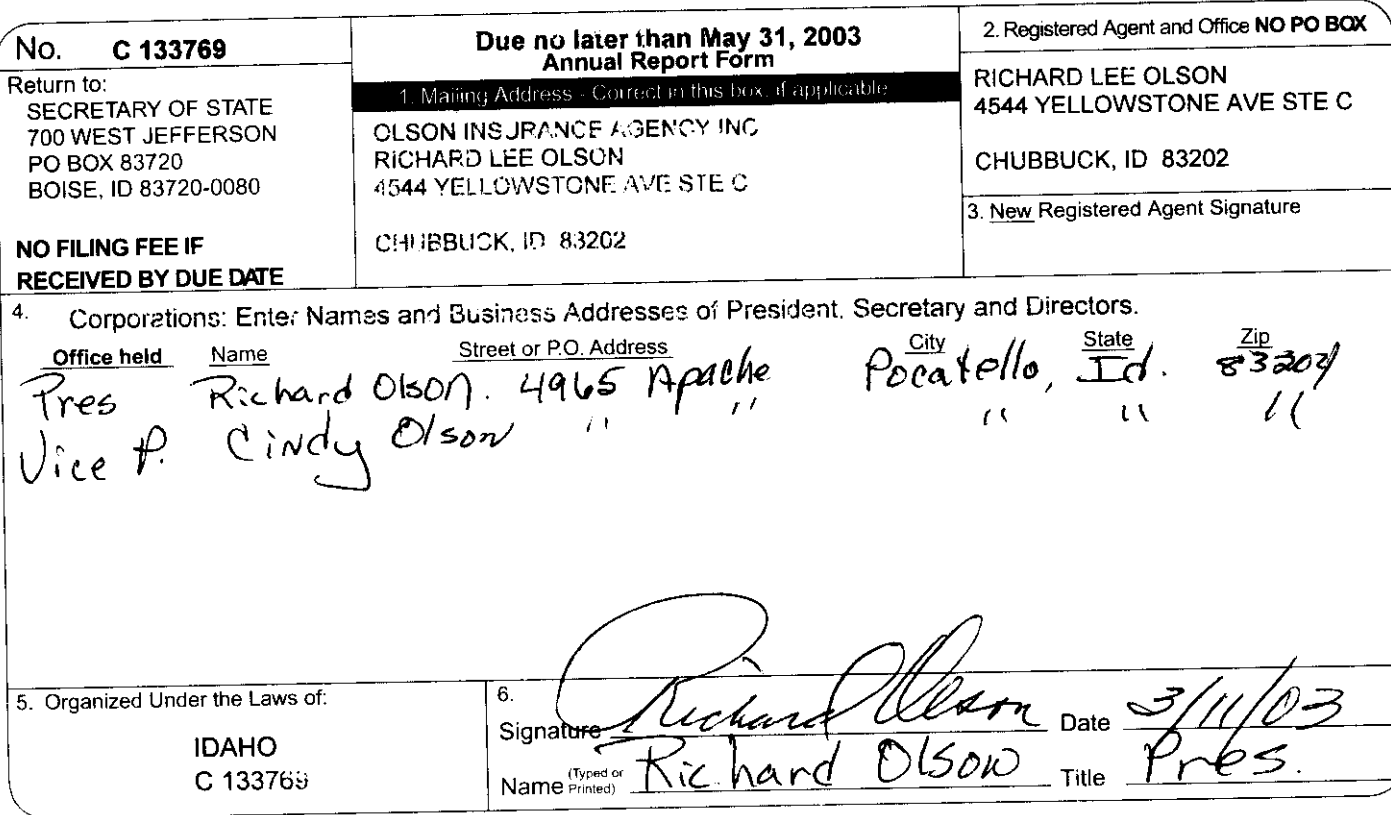 No. C 133769
Return to:
SECRETARY OF STATE
700 WEST JEFFERSON
PO BOX 83720
BOISE, ID 83720-0080
NO FILING FEE IF
RECEIVED BY DUE DATE
Due no later than May 31, 2003
Annual Report Form
1. Mailing Address - Correct in this box, if applicable
OLSON INSURANCE AGENCY INC
RICHARD LEE OLSON
4544 YELLOWSTONE AVE STE C
CHUBBUCK, ID 83202
2. Registered Agent and Office NO PO BOX
RICHARD LEE OLSON
4544 YELLOWSTONE AVE STE C
CHUBBUCK, ID 83202
3. New Registered Agent Signature
4. Corporations: Enter Names and Business Addresses of President, Secretary and Directors.
Office held Name Street or P.O. Address City State Zip
Pres Richard Olson. 4965 Apache Pocatello, Id. 83204
Vice P. Cindy Olson " " " " "
5. Organized Under the Laws of:
IDAHO
C 133769
6.
Signature Richard Olson Date 3/11/03
Name (Typed or Printed) Richard Olson Title Pres.